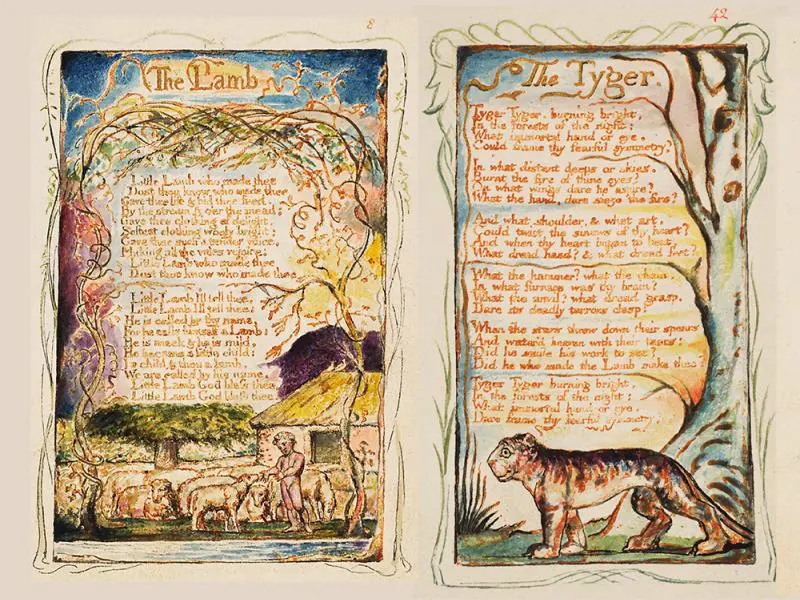 8
The Lamb
Little Lamb who made thee
Dost thou know who made thee
Gave thee life & bid thee feed.
By the stream & o'er the mead;
Gave thee clothing of delight,
Softest clothing wooly bright;
Gave thee such a tender voice,
Making all the vales rejoice:
Little Lamb who made thee
Dost thou know who made thee
Little Lamb I'll tell thee,
Little Lamb I'll tell thee;
He is called by thy name,
For he calls himself a Lamb:
He is meek & he is mild,
He became a little child:
I a child & thou a lamb,
We are called by his name.
Little Lamb God bless thee.
Little Lamb God bless thee.
42
The Tyger.
Tyger Tyger, burning bright,
In the forests of the night;
What immortal hand or eye,
Could frame thy fearful symmetry?
In what distant deeps or skies,
Burnt the fire of thine eyes?
On what wings dare he aspire?
What the hand, dare sieze the fire?
And what shoulder, & what art,
Could twist the sinews of thy heart?
And when thy heart began to beat,
What dread hand? & what dread feet?
What the hammer? what the chain,
In what furnace was thy brain?
What the anvil? what dread grasp,
Dare its deadly terrors clasp!
When the stars threw down their spears
And water'd heaven with their tears:
Did he smile his work to see?
Did he who made the Lamb make thee?
Tyger Tyger burning bright,
In the forests of the night:
What immortal hand or eye,
Dare frame thy fearful symmetry?